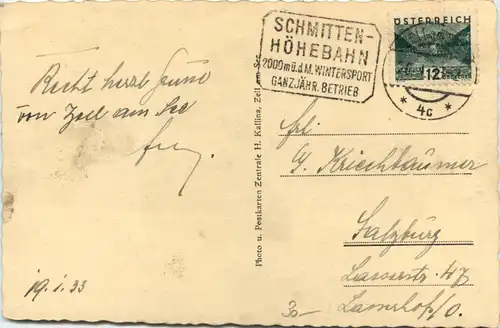 SCHMITTEN-
HÖHEBAHN
2000 m ü. d. M. WINTERSPORT
GANZJÄHR. BETRIEB
ÖSTERREICH
12
* 4c *
Recht herzl. Grüsse
von Zell am See
19. I. 33
Photo u. Postkarten Zentrale H. Kallina, Zell am See
Frl.
G. Kriechbaumer
Salzburg
Lasserstr. 47